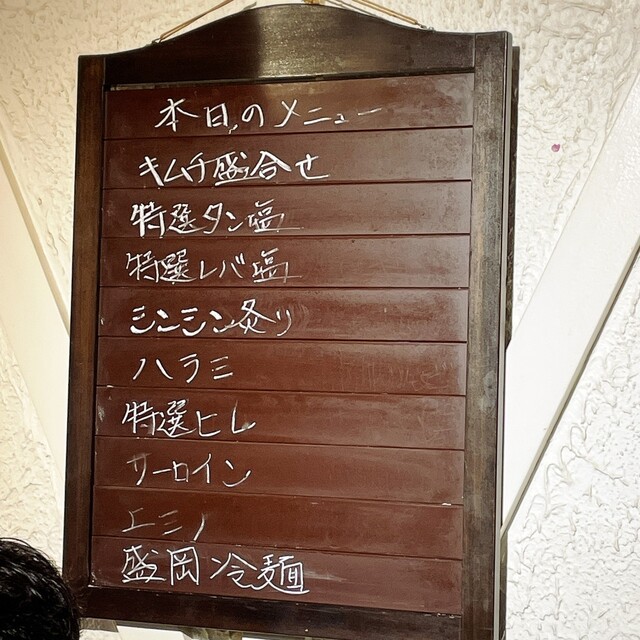 本日のメニュー
キムチ盛合せ
特選タン塩
特選レバ塩
シンシン炙り
ハラミ
特選ヒレ
サーロイン
エミノ
盛岡冷麺